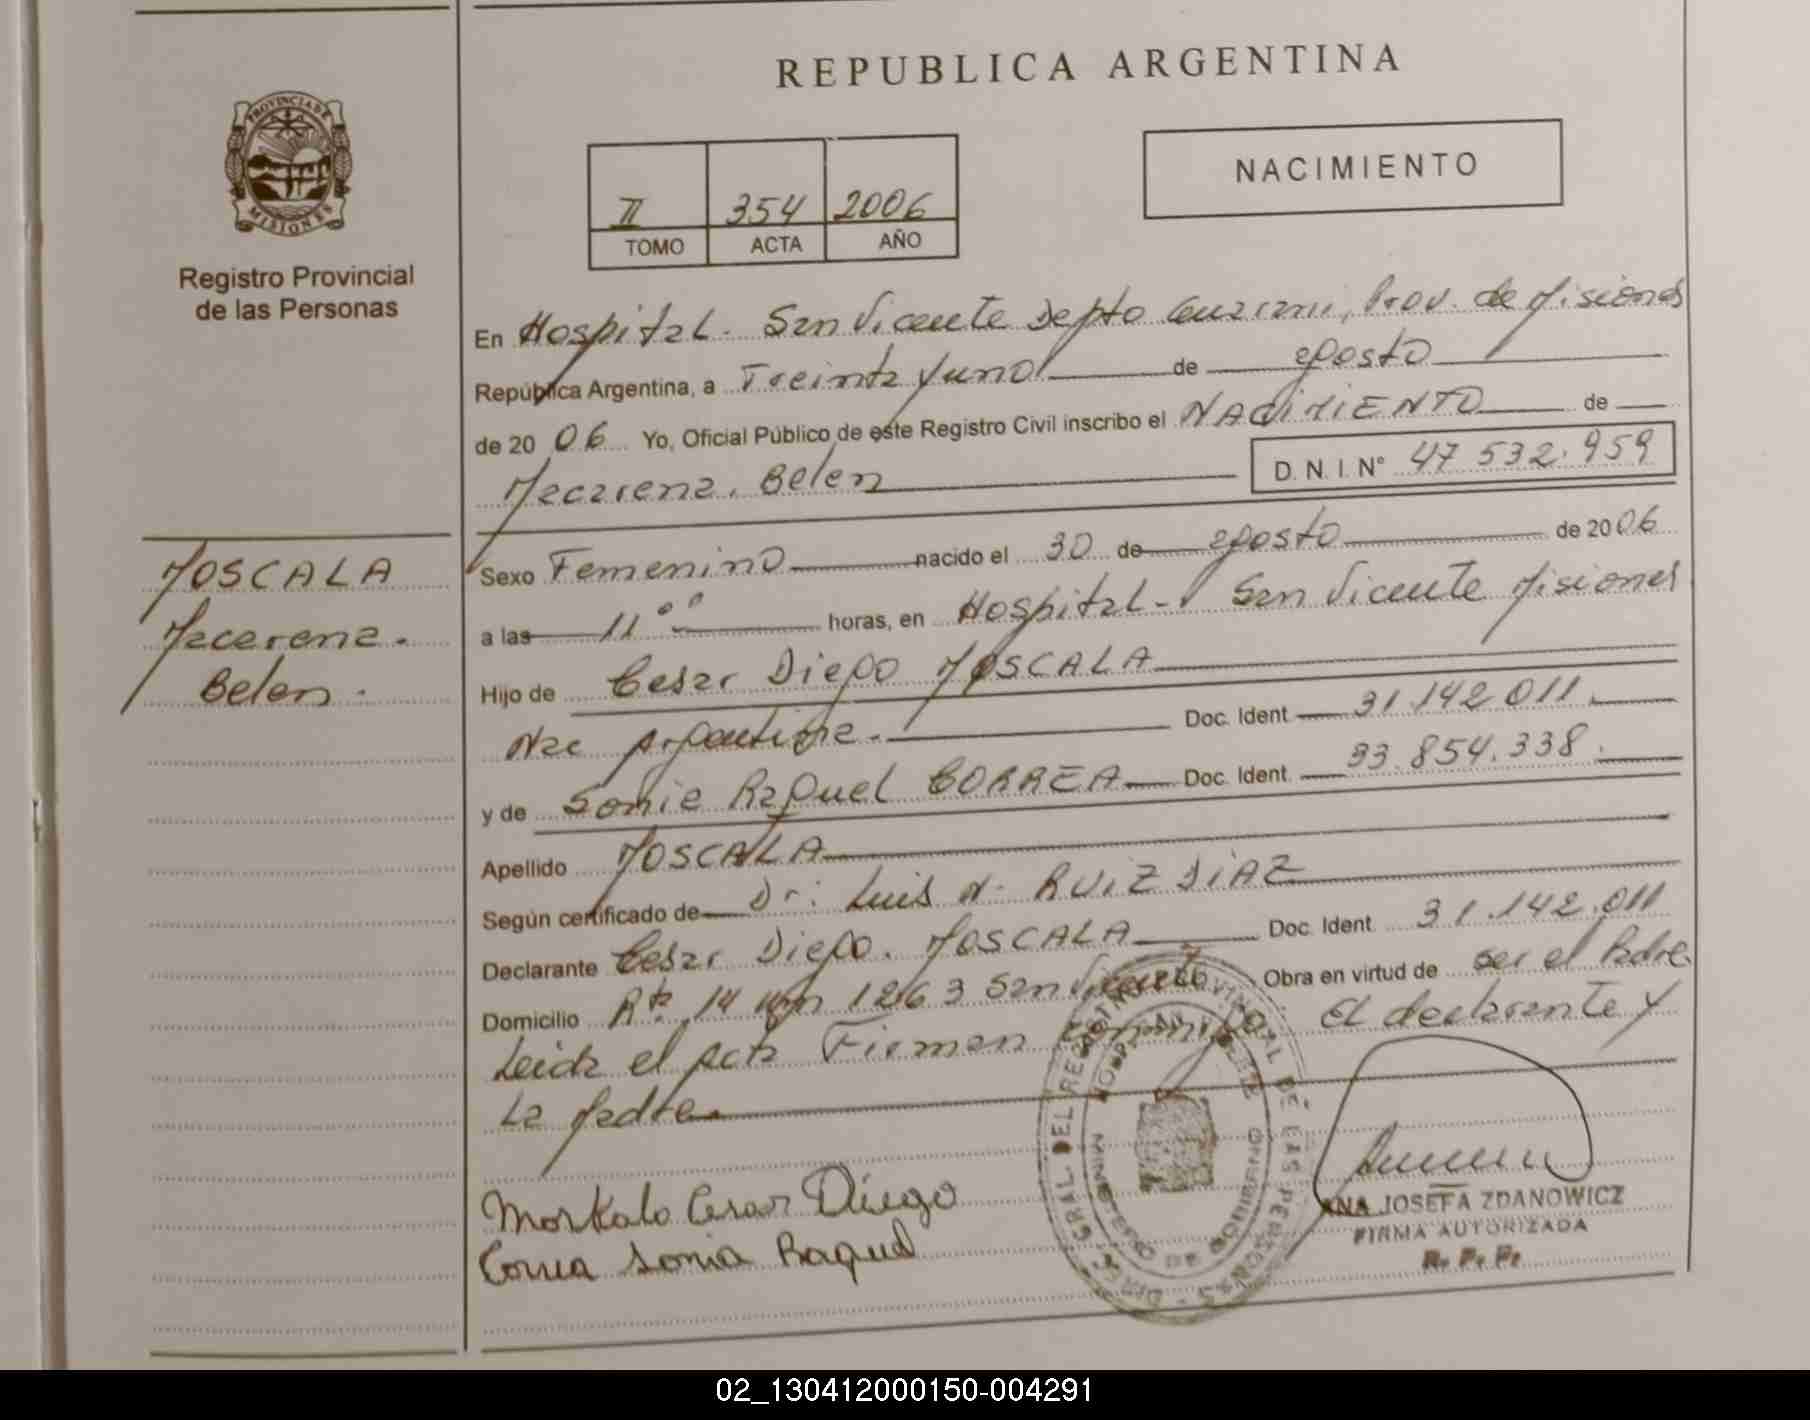 REPUBLICA ARGENTINA
PROVINCIA DE
MISIONES
Registro Provincial
de las Personas
II 354 2006
TOMO ACTA AÑO
NACIMIENTO
En Hospital - San Vicente Depto Guarani, Prov. de Misiones
República Argentina, a Treinta y uno de agosto
de 20 06 Yo, Oficial Público de este Registro Civil inscribo el NACIMIENTO de
Macarena. Belen D. N. I. N° 47 532.959
MOSCALA
Macarena.
Belen.
Sexo Femenino nacido el 30 de agosto de 20 06
a las 11 oo horas, en Hospital - San Vicente Misiones
Hijo de Cesar Diego MOSCALA
Nac Argentina. Doc. Ident 31.142 011.
y de Sonia Raquel CORREA Doc. Ident. 33.854.338.
Apellido MOSCALA
Según certificado de Dr: Luis N. RUIZ DIAZ
Declarante Cesar Diego. MOSCALA Doc. Ident. 31.142.011
Domicilio Rta 14 km 1263 San Vicente Obra en virtud de ser el Padre.
Leida el acta Firman conmigo El declarante y
La Madre.
Moskalo Cesar Diego
Correa Sonia Raquel
ANA JOSEFA ZDANOWICZ
FIRMA AUTORIZADA
R. P. P.
02_130412000150-004291